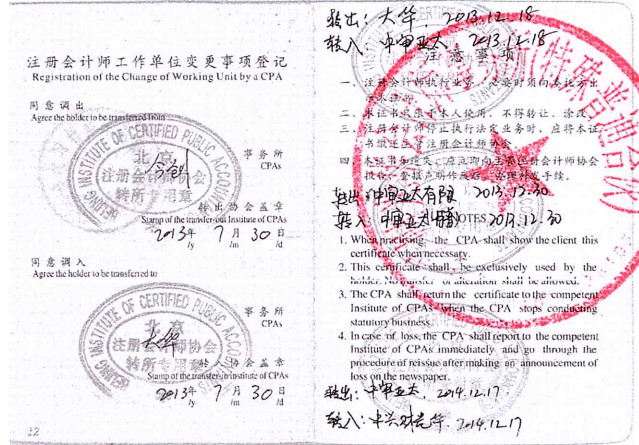 注册会计师工作单位变更事项登记
Registration of the Change of Working Unit by a CPA
同意调出
Agree the holder to be transferred from
事务所
CPAs
BEIJING INSTITUTE OF CERTIFIED PUBLIC ACCOUNTANTS
北京
注册会计师协会
转所专用章
转出协会盖章
Stamp of the transfer-out Institute of CPAs
2013年 7月 30日
/y /m /d
同意调入
Agree the holder to be transferred to
事务所
CPAs
BEIJING INSTITUTE OF CERTIFIED PUBLIC ACCOUNTANTS
北京
大华
注册会计师协会
转所专用章
转入协会盖章
Stamp of the transfer-in Institute of CPAs
2013年 7月 30日
/y /m /d
12
转出: 大华 2013.12.18
转入: 中审亚太 2013.12.18
注意事项
一、注册会计师执行业务,必要时须向委托方
二、本证书只限于本人使用,不得转让、涂改。
三、注册会计师停止执行法定业务时,应将本证
书缴还主管注册会计师协会。
四、本证书如遗失,应立即向主管注册会计师协会
报告,登报声明作废后,办理补发手续。
(特殊普通合
转出: 中审亚太有限 2013.12.30
转入 中审亚太 2013.12.30
NOTES
1. When practising, the CPA shall show the client this
certificate when necessary.
2. This certificate shall be exclusively used by the
holder. No transfer or alteration shall be allowed.
3. The CPA shall return the certificate to the competent
Institute of CPAs when the CPA stops conducting
statutory business.
4. In case of loss, the CPA shall report to the competent
Institute of CPAs immediately and go through the
procedure of reissue after making an announcement of
loss on the newspaper.
转出: 中审亚太 2014.12.17
转入: 中兴财光华 2014.12.17